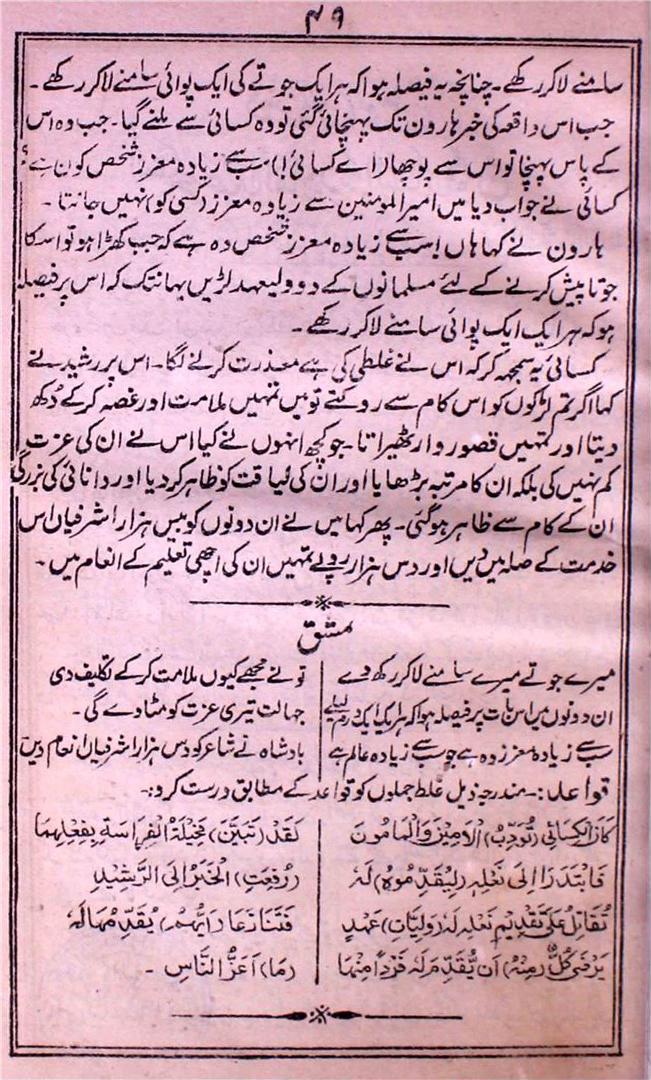 ۴۹
سامنے لاکر رکھے۔ چنانچہ یہ فیصلہ ہوا کہ ہر ایک جوتے کی ایک پوائی سامنے لاکر رکھے۔
جب اس واقعہ کی خبر ہارون تک پہنچائی گئی تو وہ کسائی سے ملنے گیا۔ جب وہ اس
کے پاس پہنچا تو اس سے پوچھا (اے کسائی!) سب سے زیادہ معزز شخص کون ہے؟
کسائی نے جواب دیا میں امیرالمومنین سے زیادہ معزز (کسی کو) نہیں جانتا۔
ہارون نے کہا ہاں! سب سے زیادہ معزز شخص وہ ہے کہ جب کھڑا ہو تو اسکا
جوتا پیش کرنے کے لئے مسلمانوں کے دو ولیعہد لڑیں یہانتک کہ اس پر فیصلہ
ہو کہ ہر ایک ایک پوائی سامنے لاکر رکھے۔
کسائی یہ سمجھ کر کہ اس نے غلطی کی ہے معذرت کرنے لگا۔ اس پر رشید نے
کہا اگر تم لڑکوں کو اس کام سے روکتے تو میں تمہیں ملامت اور غصہ کرکے دُکھ
دیتا اور تمہیں قصور وار ٹھیراتا۔ جو کچھ انہوں نے کیا اس نے ان کی عزت
کم نہیں کی بلکہ ان کا مرتبہ بڑھایا اور ان کی لیاقت کو ظاہر کر دیا اور دانائی کی بزرگی
ان کے کام سے ظاہر ہوگئی۔ پھر کہا میں نے ان دونوں کو بیس ہزار اشرفیاں اس
خدمت کے صلہ میں دیں اور دس ہزار روپے تمہیں ان کی اچھی تعلیم کے انعام میں۔
مشق
میرے جوتے میرے سامنے لاکر رکھ دے
ان دونوں میں اس بات پر فیصلہ ہوا کہ ہر ایک ایک درہم لیلے
سب سے زیادہ معزز وہ ہے جو سب سے زیادہ عالم ہے
تونے مجھے کیوں ملامت کرکے تکلیف دی
جہالت تیری عزت کو مٹادے گی۔
بادشاہ نے شاعر کو دس ہزار اشرفیاں انعام دیں
قواعد:۔ مندرجہ ذیل غلط جملوں کو قواعد کے مطابق درست کرو:۔
كَانَ الْكِسَائِي (تُودِّبُ) الْاَمِيْنَ وَالْمَامُونَ
فَابْتَدَرَا اِلىٰ نَعْلِهٖ (لِيُقَدِّمُوهُ) لَهٗ
تُقَاتِلُ عَلىٰ تَقْدِيْمِ نَعْلِهٖ لَهٗ (وَلِيَّانِ) عَهْدٍ
يَرْضىٰ كُلٌّ (مِنْهُ) اَنْ يُّقَدِّمَ لَهٗ فَرْدًا مِنْهَا
لَقَدْ (تَبَيَّنَ) مَخِيْلَةُ الْفِرَاسَةِ بِفِعْلِهِمَا
(رُفِعَتِ) الْخَبَرُ اِلَى الرَّشِيْدِ
فَتَنَازَعَا (اَيُّهُمْ) يُقَدِّمُهَا لَهٗ
(مَا) اَعَزُّ النَّاسِ۔